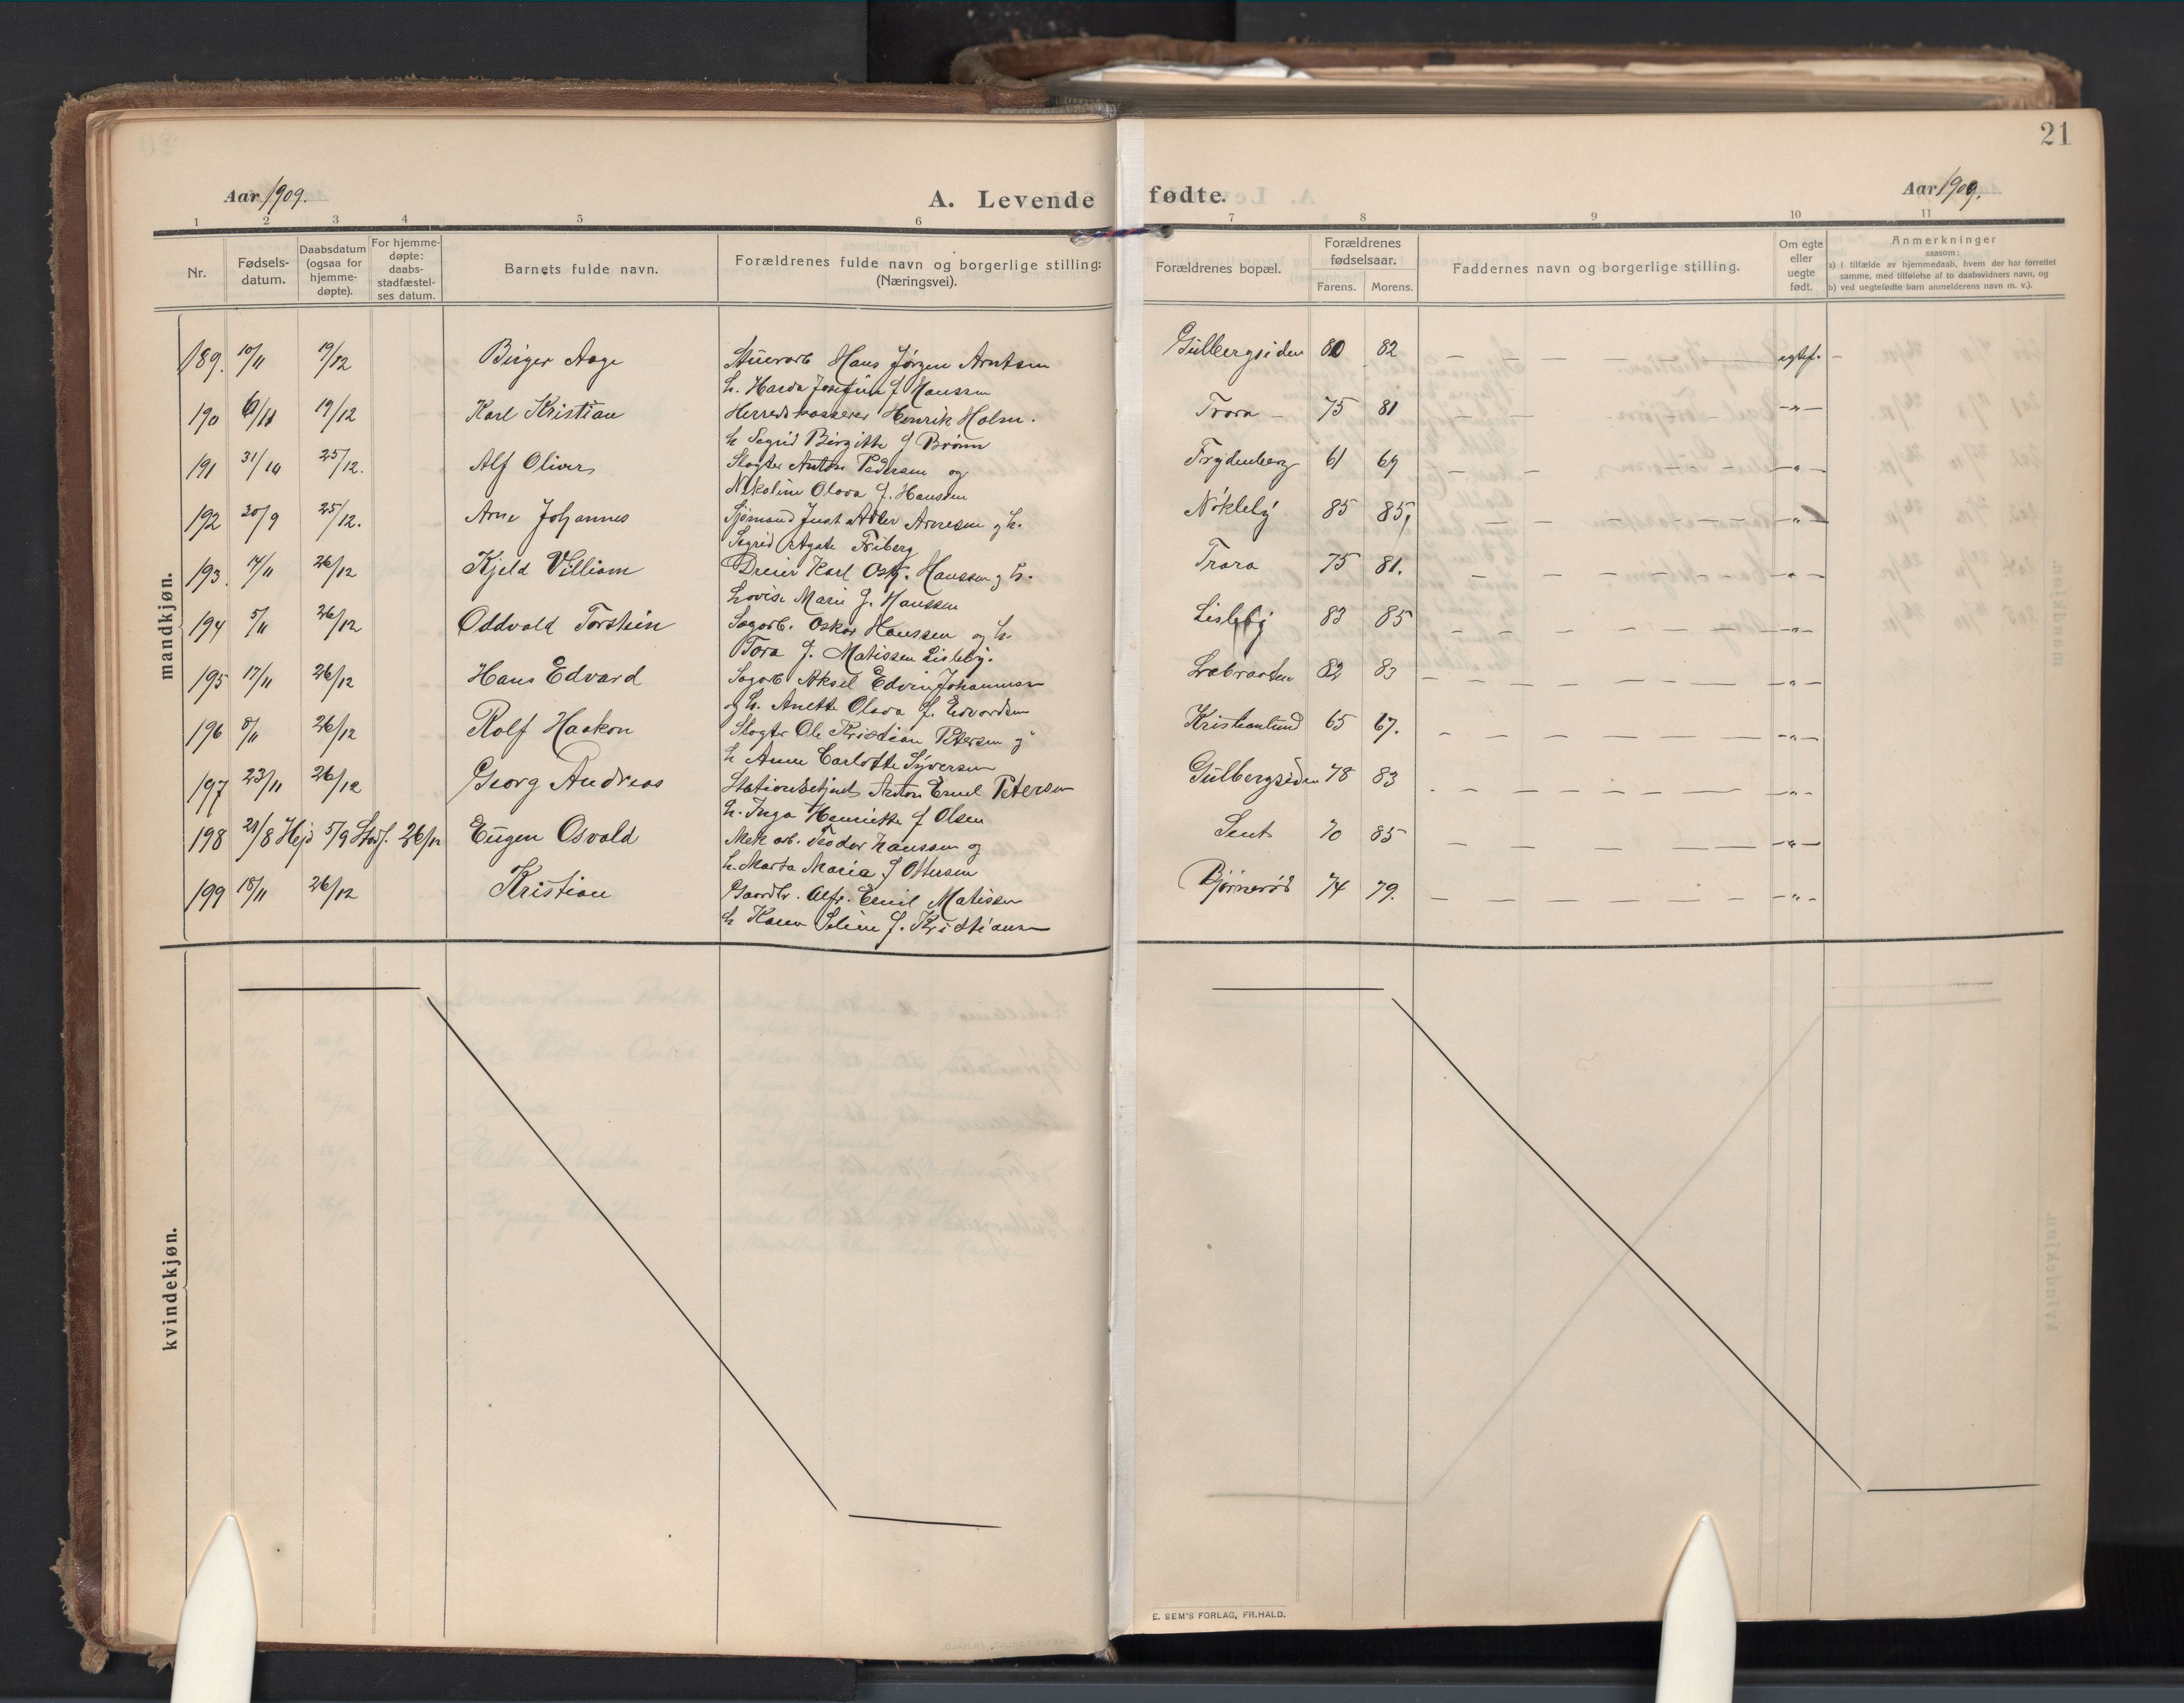 21
Aar 1909.
A. Levende fødte.
Aar 1909.
1 2 3 4 5 6 7 8 9 10 11
Nr.
Fødsels-
datum.
Daabsdatum
(ogsaa for
hjemme-
døpte).
For hjemme-
døpte:
daabs-
stadfæstel-
ses datum.
Barnets fulde navn.
Forældrenes fulde navn og borgerlige stilling:
(Næringsvei).
Forældrenes bopæl.
Forældrenes
fødselsaar.
Farens. Morens.
Faddernes navn og borgerlige stilling.
Om egte
eller
uegte
født.
Anmerkninger
saasom:
a) I tilfælde av hjemmedaab, hvem der har forrettet
samme, med tilføielse af to daabsvidners navn, og
b) ved uegtefødte barn anmelderens navn m. v.).
mandkjøn.
189. 10/11 19/12 Birger Aage Stuerarb Hans Jørgen Arntsen Gulbergsiden 80 82 — — — — — — egtef. —
h. Harda Josefine f Hanssen
190 6/11 19/12 Karl Kristian Herredskasserer Henrik Holm. Trara — 75 81 —"—
h Segrid Birgitte f Brönn
191 31/10 25/12. Alf Oliver Slagter Anton Pedersen og Frydenberg 61 69 — — — — — —"—
Nikoline Olava f. Hanssen
192 30/9 25/12. Arne Johannes Sjømand Just Adler Arnesen og h. Nökleby 85 85, — — — — — —"—
Segrid Agate Friberg
193. 14/11 26/12 Kjeld Villiam Dreier Karl Osk. Hanssen og h. Trara 75 81. — — — — — —"—
Lovise Marie f. Hanssen
194 5/11 26/12 Oddvald Torstein Sagarb. Oskar Hanssen og h. Lisleby 83 85 — — — — — —"—
Tora f. Matissen Lisleby.
195 17/11 26/12 Hans Edvard Sagarb Aksel Edvin Johannesen 82 83 — — — — — —"—
og h. Anette Olava f. Edvardsen
196 8/11 26/12 Rolf Haakon Slagter Ole Kristian Petersen og Kristianlund 65 67. — — — — — —"—
h Anna Carlotte Syversen
197 23/11 26/12 Georg Andreas Stationsbetjent Anton Emil Petersen Gulbergsiden 78 83 — — — — — —"—
h. Inga Henriette f Olsen
198 21/8 Hejd 5/9 Stadf. 26/12 Eugen Osvald Mek arb. Teodor Hanssen og Sent 70 85 — — — — — —"—
h. Marta Maria f Ottersen
199 18/11 26/12 Kristian Gaardbr. Alfr. Emil Matissen Bjørnerød 74 79. — — — — — —"—
h Karen Seline f. Kristiansen
kvindekjøn.
E. SEM'S FORLAG, FR.HALD.